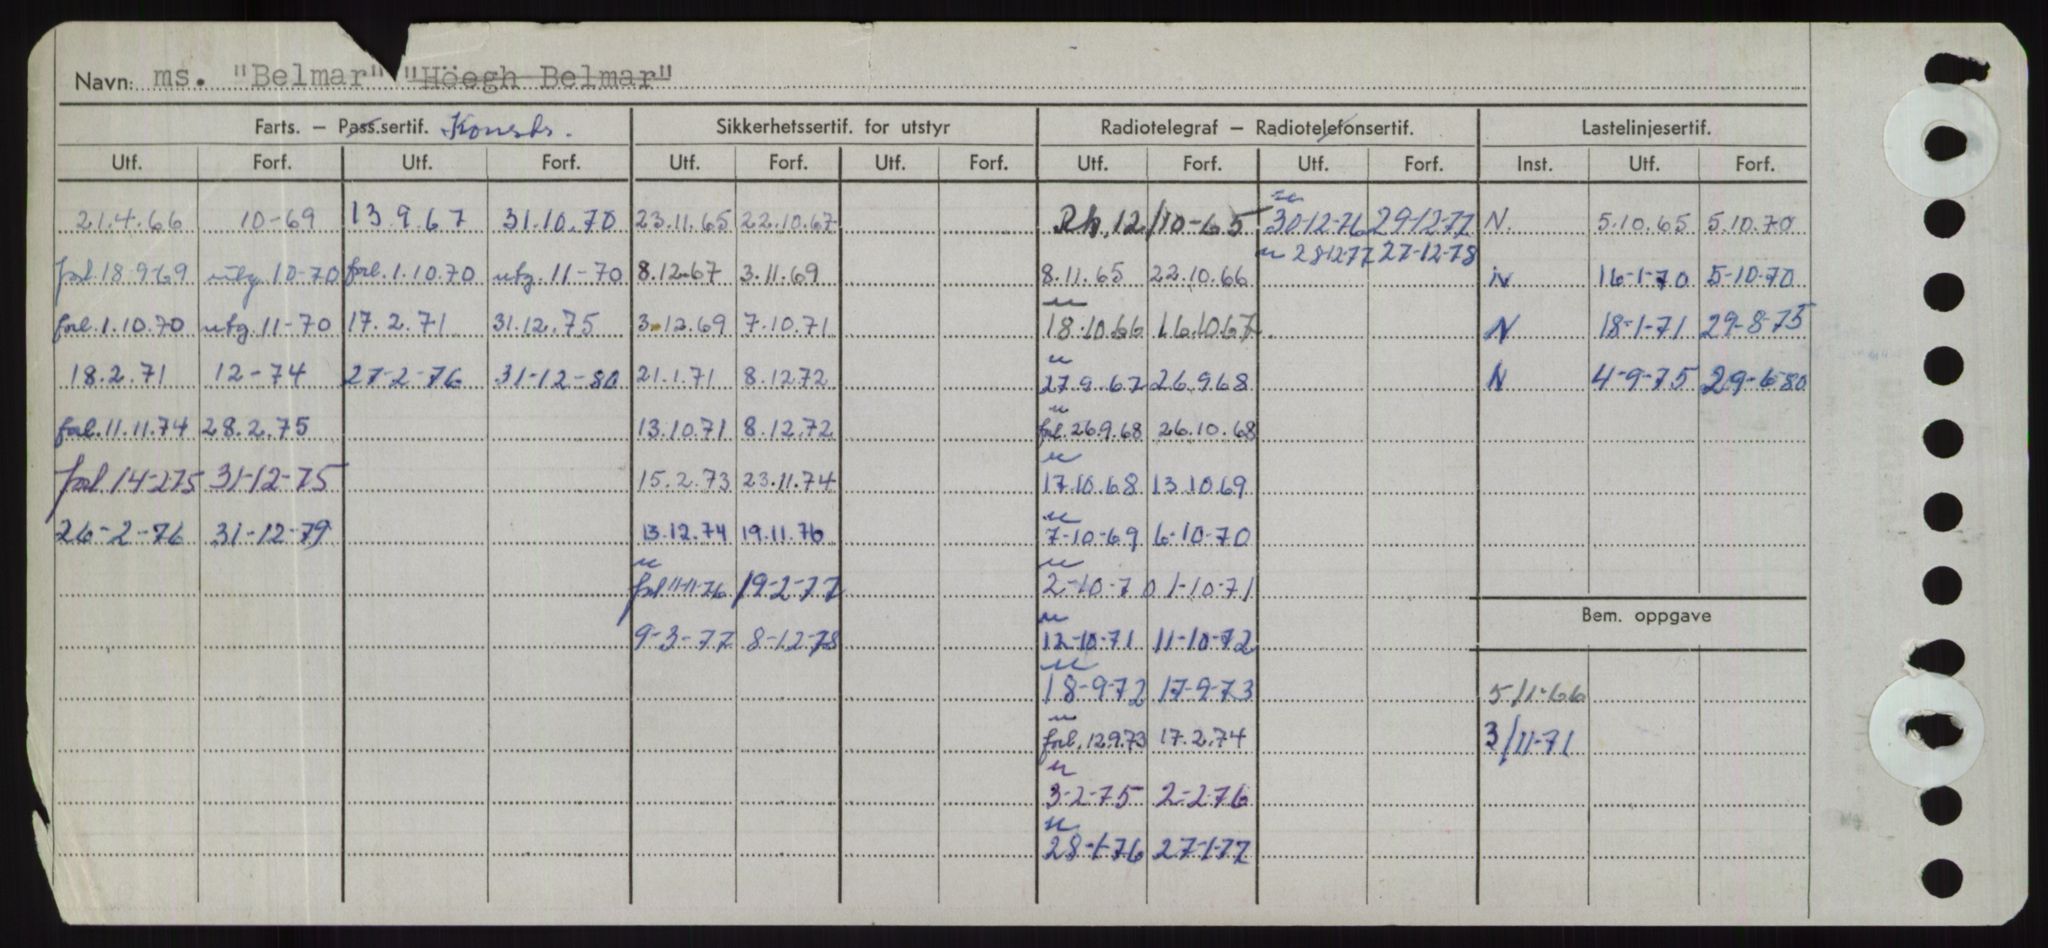 Navn: ms. "Belmar" "Höegh Belmar"
Farts. – Pass.sertif. Konstr. Sikkerhetssertif. for utstyr Radiotelegraf – Radiotelefonsertif. Lastelinjesertif.
Utf. Forf. Utf. Forf. Utf. Forf. Utf. Forf. Utf. Forf. Utf. Forf. Inst. Utf. Forf.
21.4.66 10-69 13.9.67 31.10.70 23.11.65 22.10.67 Rh. 12/10-65 30-12-76 29-12-77 N. 5.10.65 5.10.70
28-12-77 27-12-78
forl. 18-9-69 utg. 10-70 forl. 1.10.70 utg. 11-70 8.12.67 3.11.69 8.11.65 22.10.66 N 16-1-70 5-10-70
forl. 1.10.70 utg. 11-70 17.2.71 31.12.75 3.12.69 7.10.71 18.10.66 16.10.67 N 18-1-71 29-8-75
18.2.71 12-74 27-2-76 31-12-80 21.1.71 8.12.72 27.9.67 26.9.68 N 4-9-75 29-6-80
forl. 11.11.74 28.2.75 13.10.71 8.12.72 forl. 26.9.68 26.10.68
forl 14-2-75 31-12-75 15.2.73 23.11.74 17.10.68 13.10.69
26-2-76 31-12-79 13.12.74 19.11.76 7-10-69 6-10-70
forl 11-11-76 19-2-77 2-10-70 1-10-71
Bem. oppgave
9-3-77 8-12-78 12-10-71 11-10-72
18-9-72 17-9-73 5/11-66
forl. 12.9.73 17.2.74 3/11-71
3-2-75 2-2-76
28-1-76 27-1-77